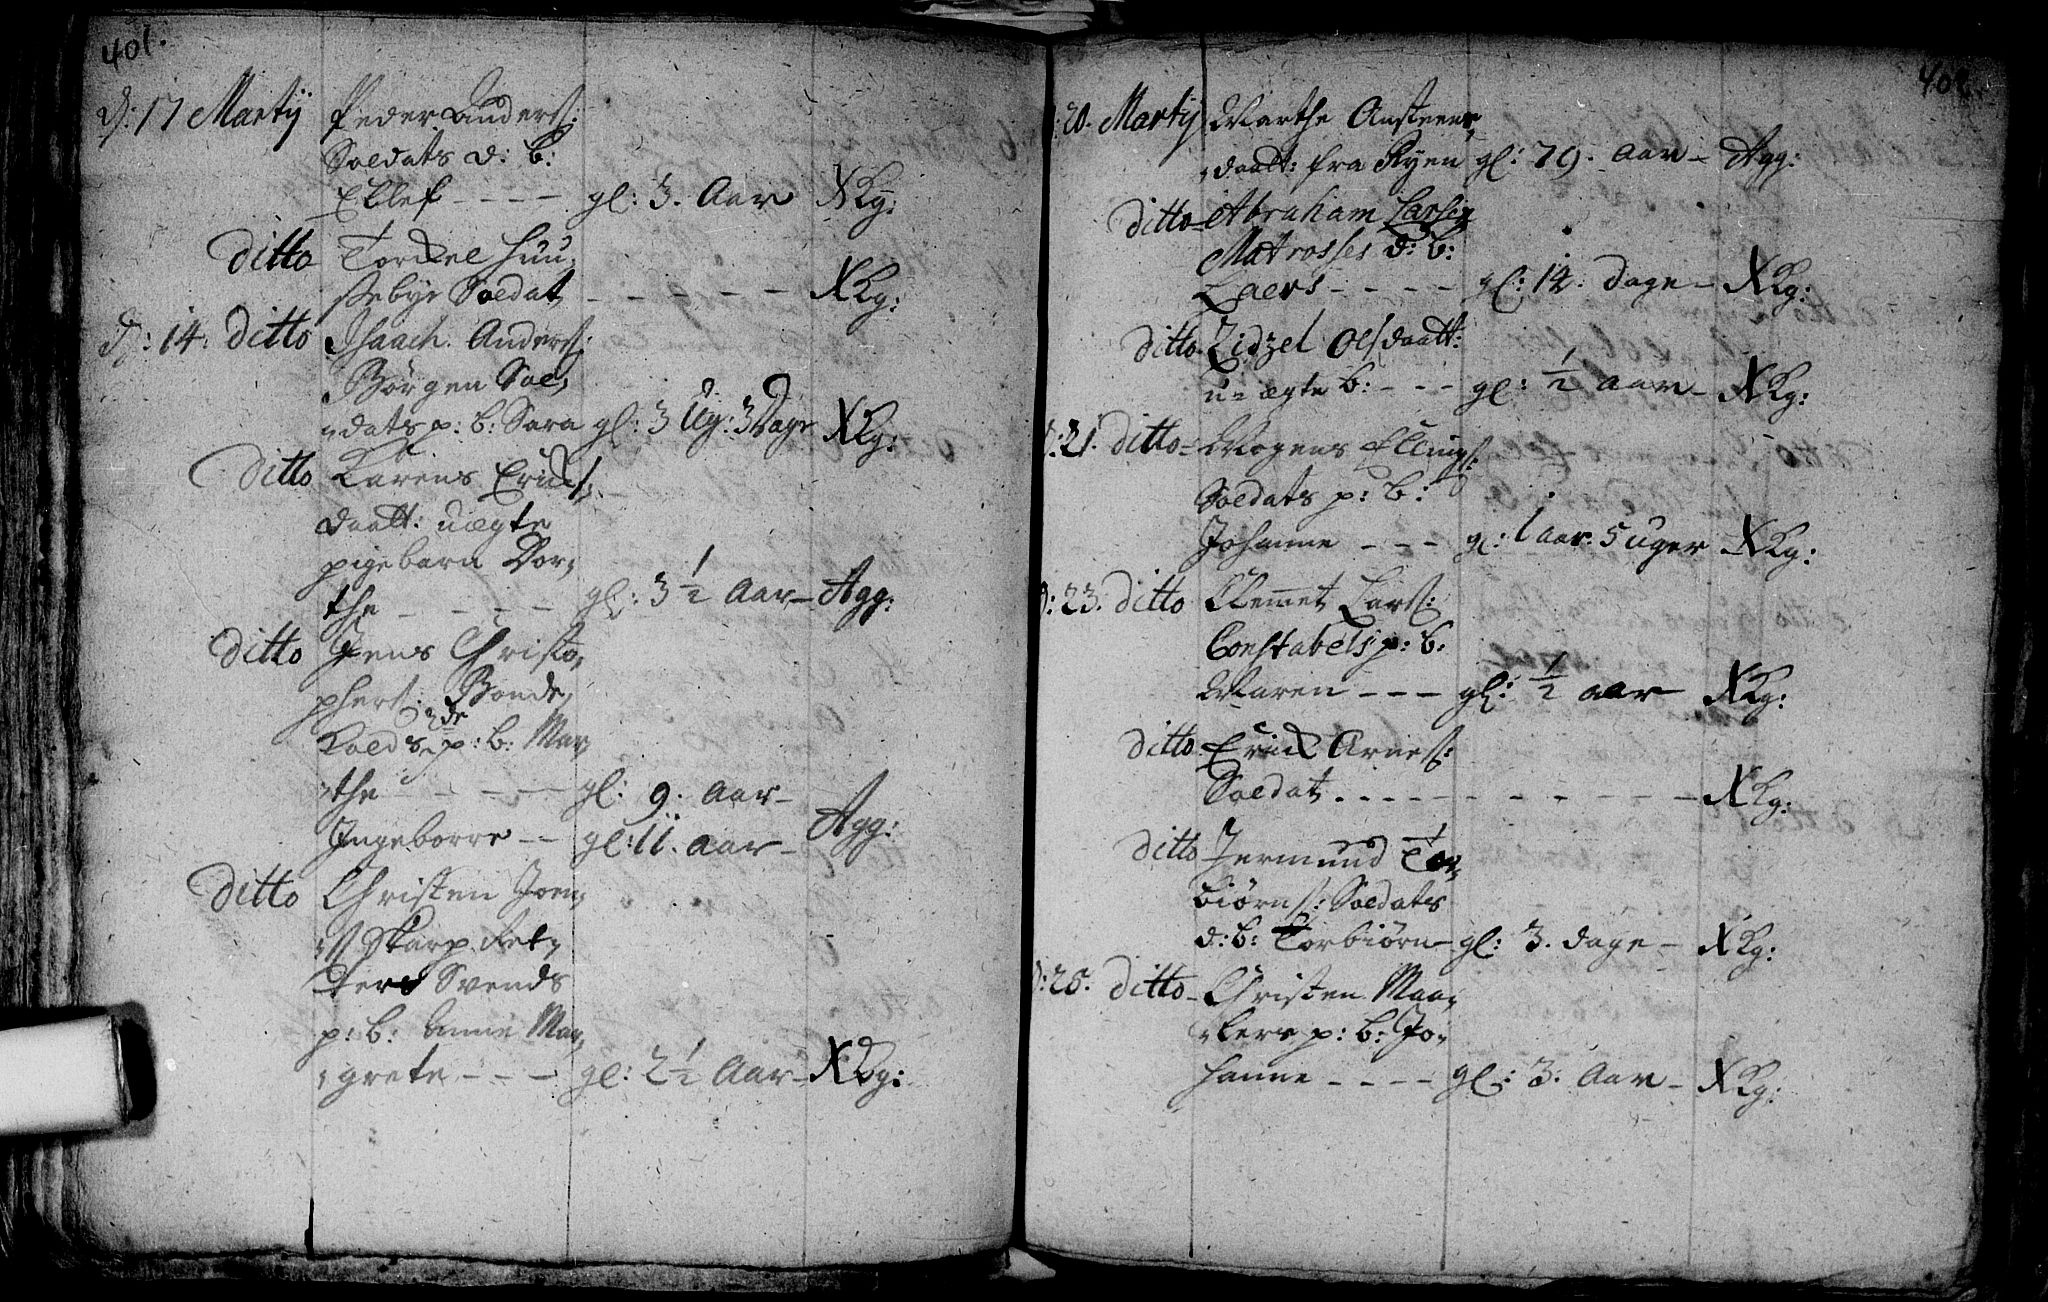 401.
D: 17 Martij Peder Anders:
Soldats d: b:
Ellef - - - - gl: 3. Aar XKg:
ditto Torckel Huu,
sebye Soldat - - - - - - XKg:
D: 14. ditto Isaach Anders:
Börgen Sol,
,dats p: b: Sara gl: 3 Ug: 3 Dage XKg:
ditto Karens Erichs,
daatt: uægte
pigebarn Dor,
the - - - - gl: 3 1/2 Aar - Agg:
ditto Jens Christo,
phers: Bonde,
Kolds 2de p: b: Mar
,the - - - - gl: 9. Aar -
Ingeborre - - gl: 11. Aar - Agg:
ditto Christen Joen,
,s: Skarp Ret,
ters Svends
p: b: Anne Mar,
,grete - - - gl: 2 1/2 Aar - XKg:
402.
D: 20. Martij Marthe Austens,
,daatt: fra Ryen gl: 79. Aar - Agg:
ditto - Abraham Larsen
Matrosses d: b:
Laers - - - - gl: 14. Dage - XKg:
ditto. Zidzel Olsdaatt:
u-ægte b: - - - gl: 1/2 Aar - XKg:
D: 21. ditto - Mogens Ellings:
Soldats p: b:
Johanne - - - gl: 1 aar. 5 uger - XKg:
D: 23. ditto Clemmet Lars:
Constabels p: b:
Maren - - - gl: 1/2 aar - XKg:
ditto Erick Arnes:
Soldat - - - - - - - - - XKg:
ditto Jermund Tor,
biørns: Soldats
d: b: Torbiørn - gl: 3. dage - XKg:
D: 25. ditto - Christen Maa,
,lers p: b: Jo,
hanne - - - - gl: 3. Aar - XKg: